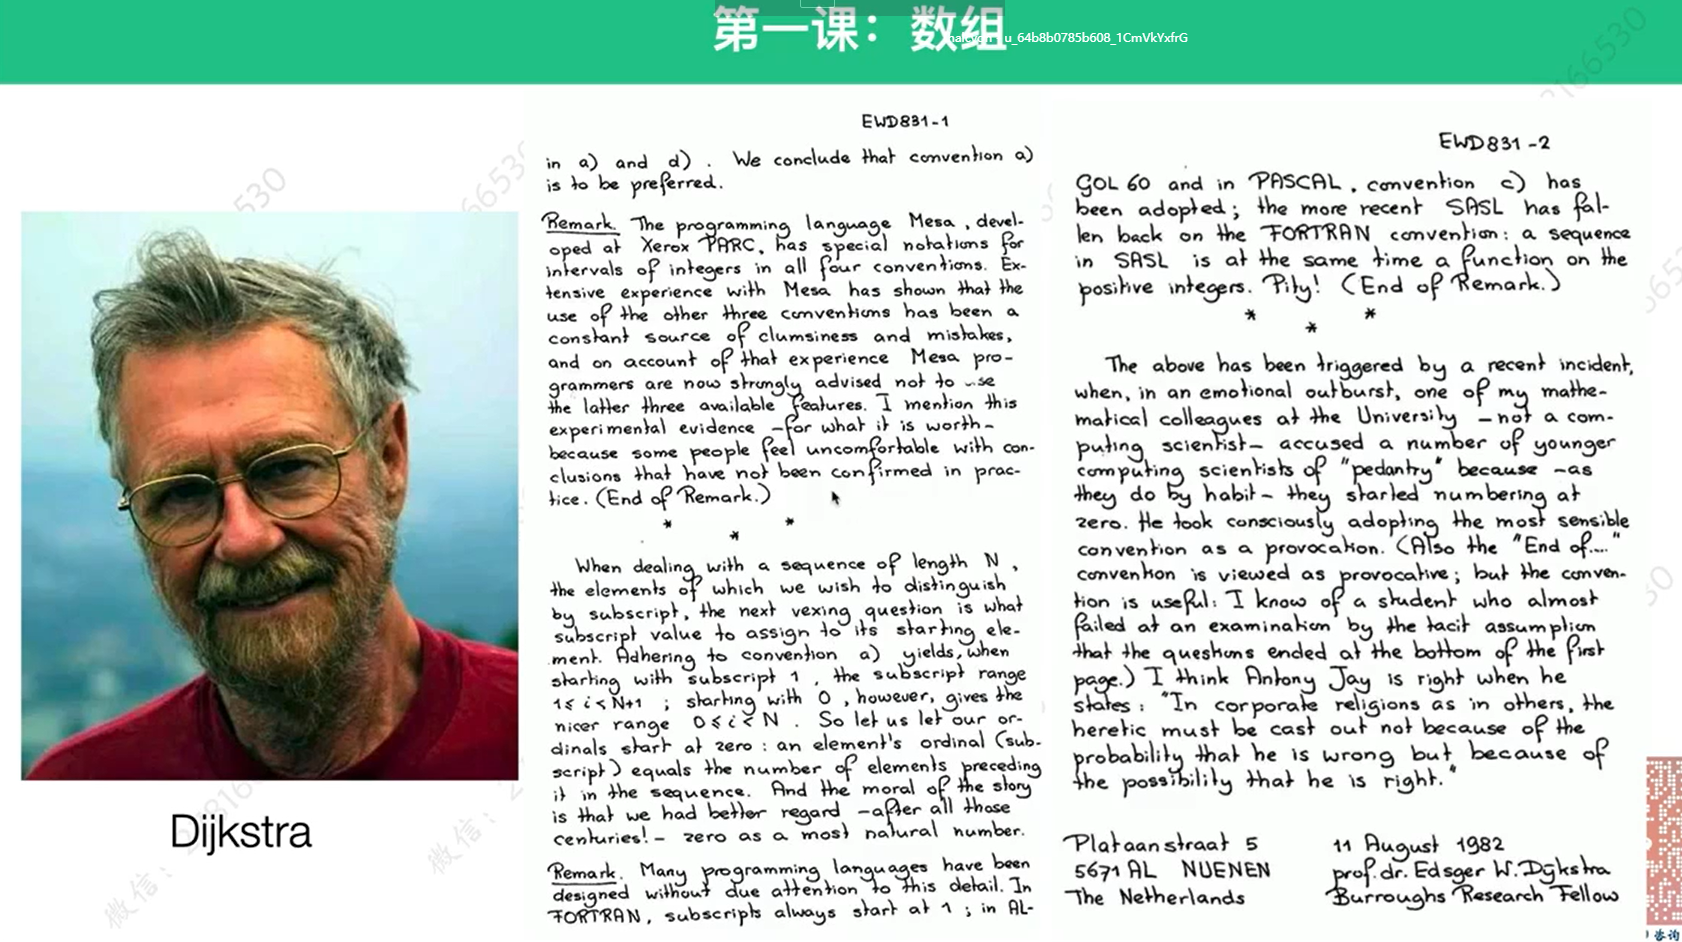 第一课：数组
u_64b8b0785b608_1CmVkYxfrG
Dijkstra
EWD831-1
in a) and d) . We conclude that convention a)
is to be preferred.
Remark. The programming language Mesa, devel-
oped at Xerox PARC, has special notations for
intervals of integers in all four conventions. Ex-
tensive experience with Mesa has shown that the
use of the other three conventions has been a
constant source of clumsiness and mistakes,
and on account of that experience Mesa pro-
grammers are now strongly advised not to use
the latter three available features. I mention this
experimental evidence —for what it is worth—
because some people feel uncomfortable with con-
clusions that have not been confirmed in prac-
tice. (End of Remark.)
* * *
When dealing with a sequence of length N,
the elements of which we wish to distinguish
by subscript, the next vexing question is what
subscript value to assign to its starting ele-
ment. Adhering to convention a) yields, when
starting with subscript 1, the subscript range
1 ≤ i < N+1 ; starting with 0, however, gives the
nicer range 0 ≤ i < N . So let us let our or-
dinals start at zero: an element's ordinal (sub-
script) equals the number of elements preceding
it in the sequence. And the moral of the story
is that we had better regard —after all those
centuries!— zero as a most natural number.
Remark. Many programming languages have been
designed without due attention to this detail. In
FORTRAN, subscripts always start at 1; in AL-
EWD831-2
GOL 60 and in PASCAL, convention c) has
been adopted; the more recent SASL has fal-
len back on the FORTRAN convention: a sequence
in SASL is at the same time a function on the
positive integers. Pity! (End of Remark.)
* * *
The above has been triggered by a recent incident,
when, in an emotional outburst, one of my mathe-
matical colleagues at the University —not a com-
puting scientist— accused a number of younger
computing scientists of "pedantry" because —as
they do by habit— they started numbering at
zero. He took consciously adopting the most sensible
convention as a provocation. (Also the "End of...."
convention is viewed as provocative; but the conven-
tion is useful: I know of a student who almost
failed at an examination by the tacit assumption
that the questions ended at the bottom of the first
page.) I think Antony Jay is right when he
states: "In corporate religions as in others, the
heretic must be cast out not because of the
probability that he is wrong but because of
the possibility that he is right."
Plataanstraat 5
5671 AL NUENEN
The Netherlands
11 August 1982
prof.dr. Edsger W. Dijkstra
Burroughs Research Fellow
咨询